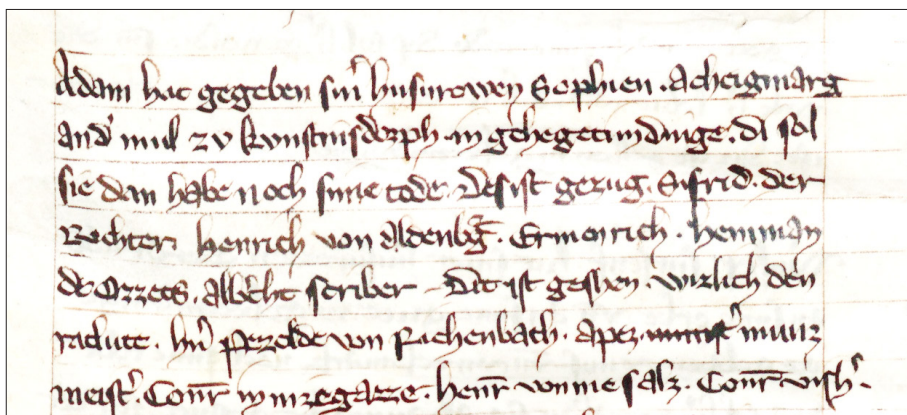 Adam hat gegeben sin̄ husurowen Sophien. acheigmarg
and' mul zv kvnstinsdorph in gehegetim dinge. di sol
sie dan habe noch sinne tode. Des ist gezug. Sifrid. der
Rechter. Henrich von Aldenbg̅. Ermenrich. Hemman
de Ozzets. Albr̅cht scriber Dit ist geshen. wizlich den
ratlute. hr̅n Pezolde von Richenbach. apez. munz
meist'. Conr̅ in inzegazze. Henr̅ vonme salz. Conr̅ vish'.